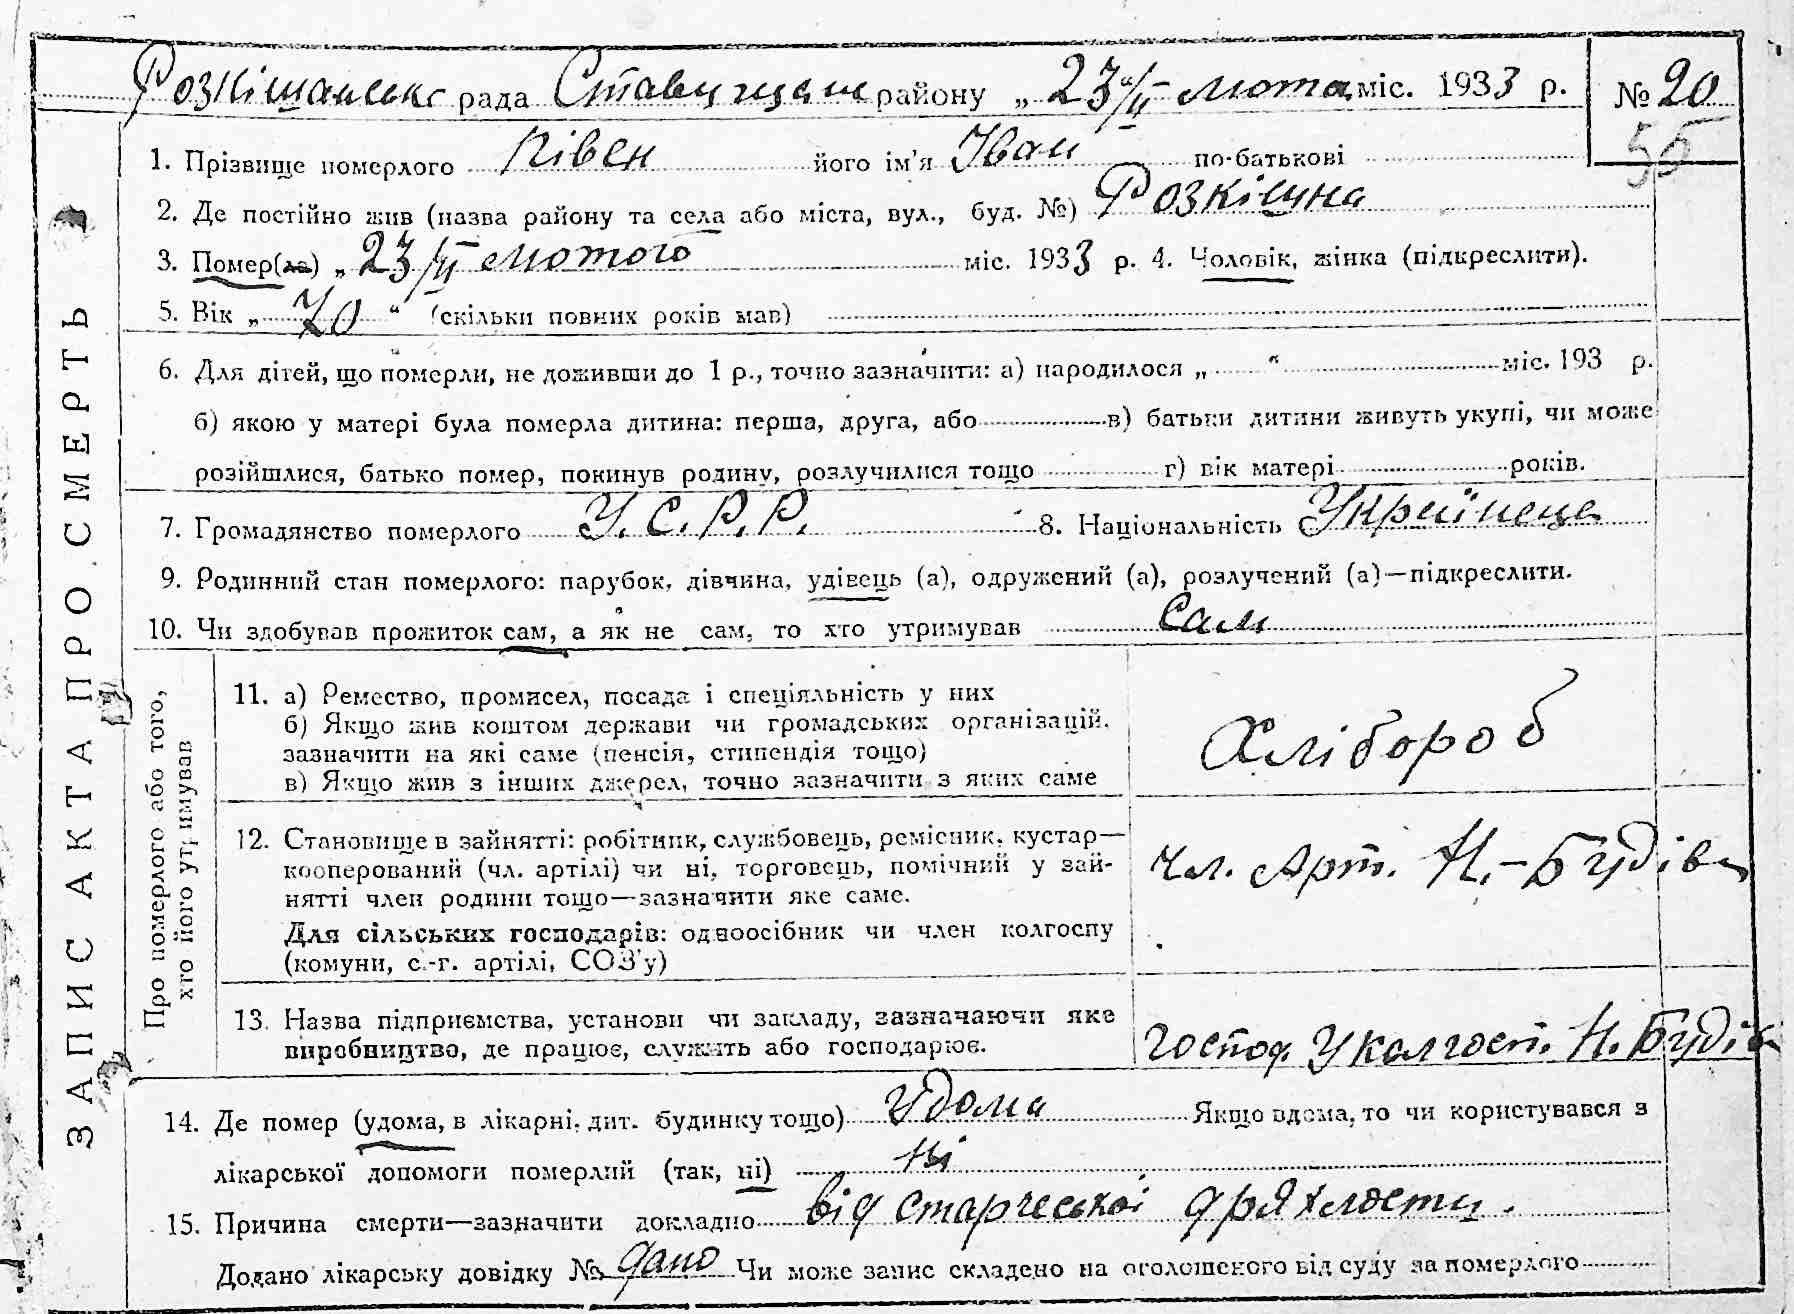 Розкішанська рада Ставищан району „ 23/II лютого міс. 1933 р. № 20
56
ЗАПИС АКТА ПРО СМЕРТЬ
1. Прізвище померлого Півен його ім’я Іван по-батькові
2. Де постійно жив (назва району та села або міста, вул., буд. №) Розкішна
3. Помер(ла) „ 23/II лютого міс. 1933 р. 4. Чоловік, жінка (підкреслити).
5. Вік „ 70 “ (скільки повних років мав)
6. Для дітей, що померли, не доживши до 1 р., точно зазначити: а) народилося „ “ міс. 193 р.
б) якою у матері була померла дитина: перша, друга, або в) батьки дитини живуть укупі, чи може
розійшлися, батько помер, покинув родину, розлучилися тощо г) вік матері років.
7. Громадянство померлого У.С.Р.Р. 8. Національність Українець
9. Родинний стан померлого: парубок, дівчина, удівець (а), одружений (а), розлучений (а)—підкреслити.
10. Чи здобував прожиток сам, а як не сам, то хто утримував Сам
Про померлого або того,
хто його утримував
11. а) Ремество, промисел, посада і спеціяльність у них
б) Якщо жив коштом держави чи громадських організацій,
зазначити на які саме (пенсія, стипендія тощо)
в) Якщо жив з інших джерел, точно зазначити з яких саме
Хлібороб
12. Становище в зайнятті: робітник, службовець, ремісник, кустар—
кооперований (чл. артілі) чи ні, торговець, помічний у зай-
нятті член родини тощо—зазначити яке саме.
Для сільських господарів: одноосібник чи член колгоспу
(комуни, с.-г. артілі, СОЗ’у)
Чл. Арт. Н.-Будів
13. Назва підприємства, установи чи закладу, зазначаючи яке
виробництво, де працює, служить або господарює.
Господ. У колгосп. Н. Будів
14. Де помер (удома, в лікарні, дит. будинку тощо) Удома Якщо вдома, то чи користувався з
лікарської допомоги померлий (так, ні) Ні
15. Причина смерти—зазначити докладно від старческої дряхлости.
Додано лікарську довідку № дано Чи може запис складено на оголошеного від суду за померлого